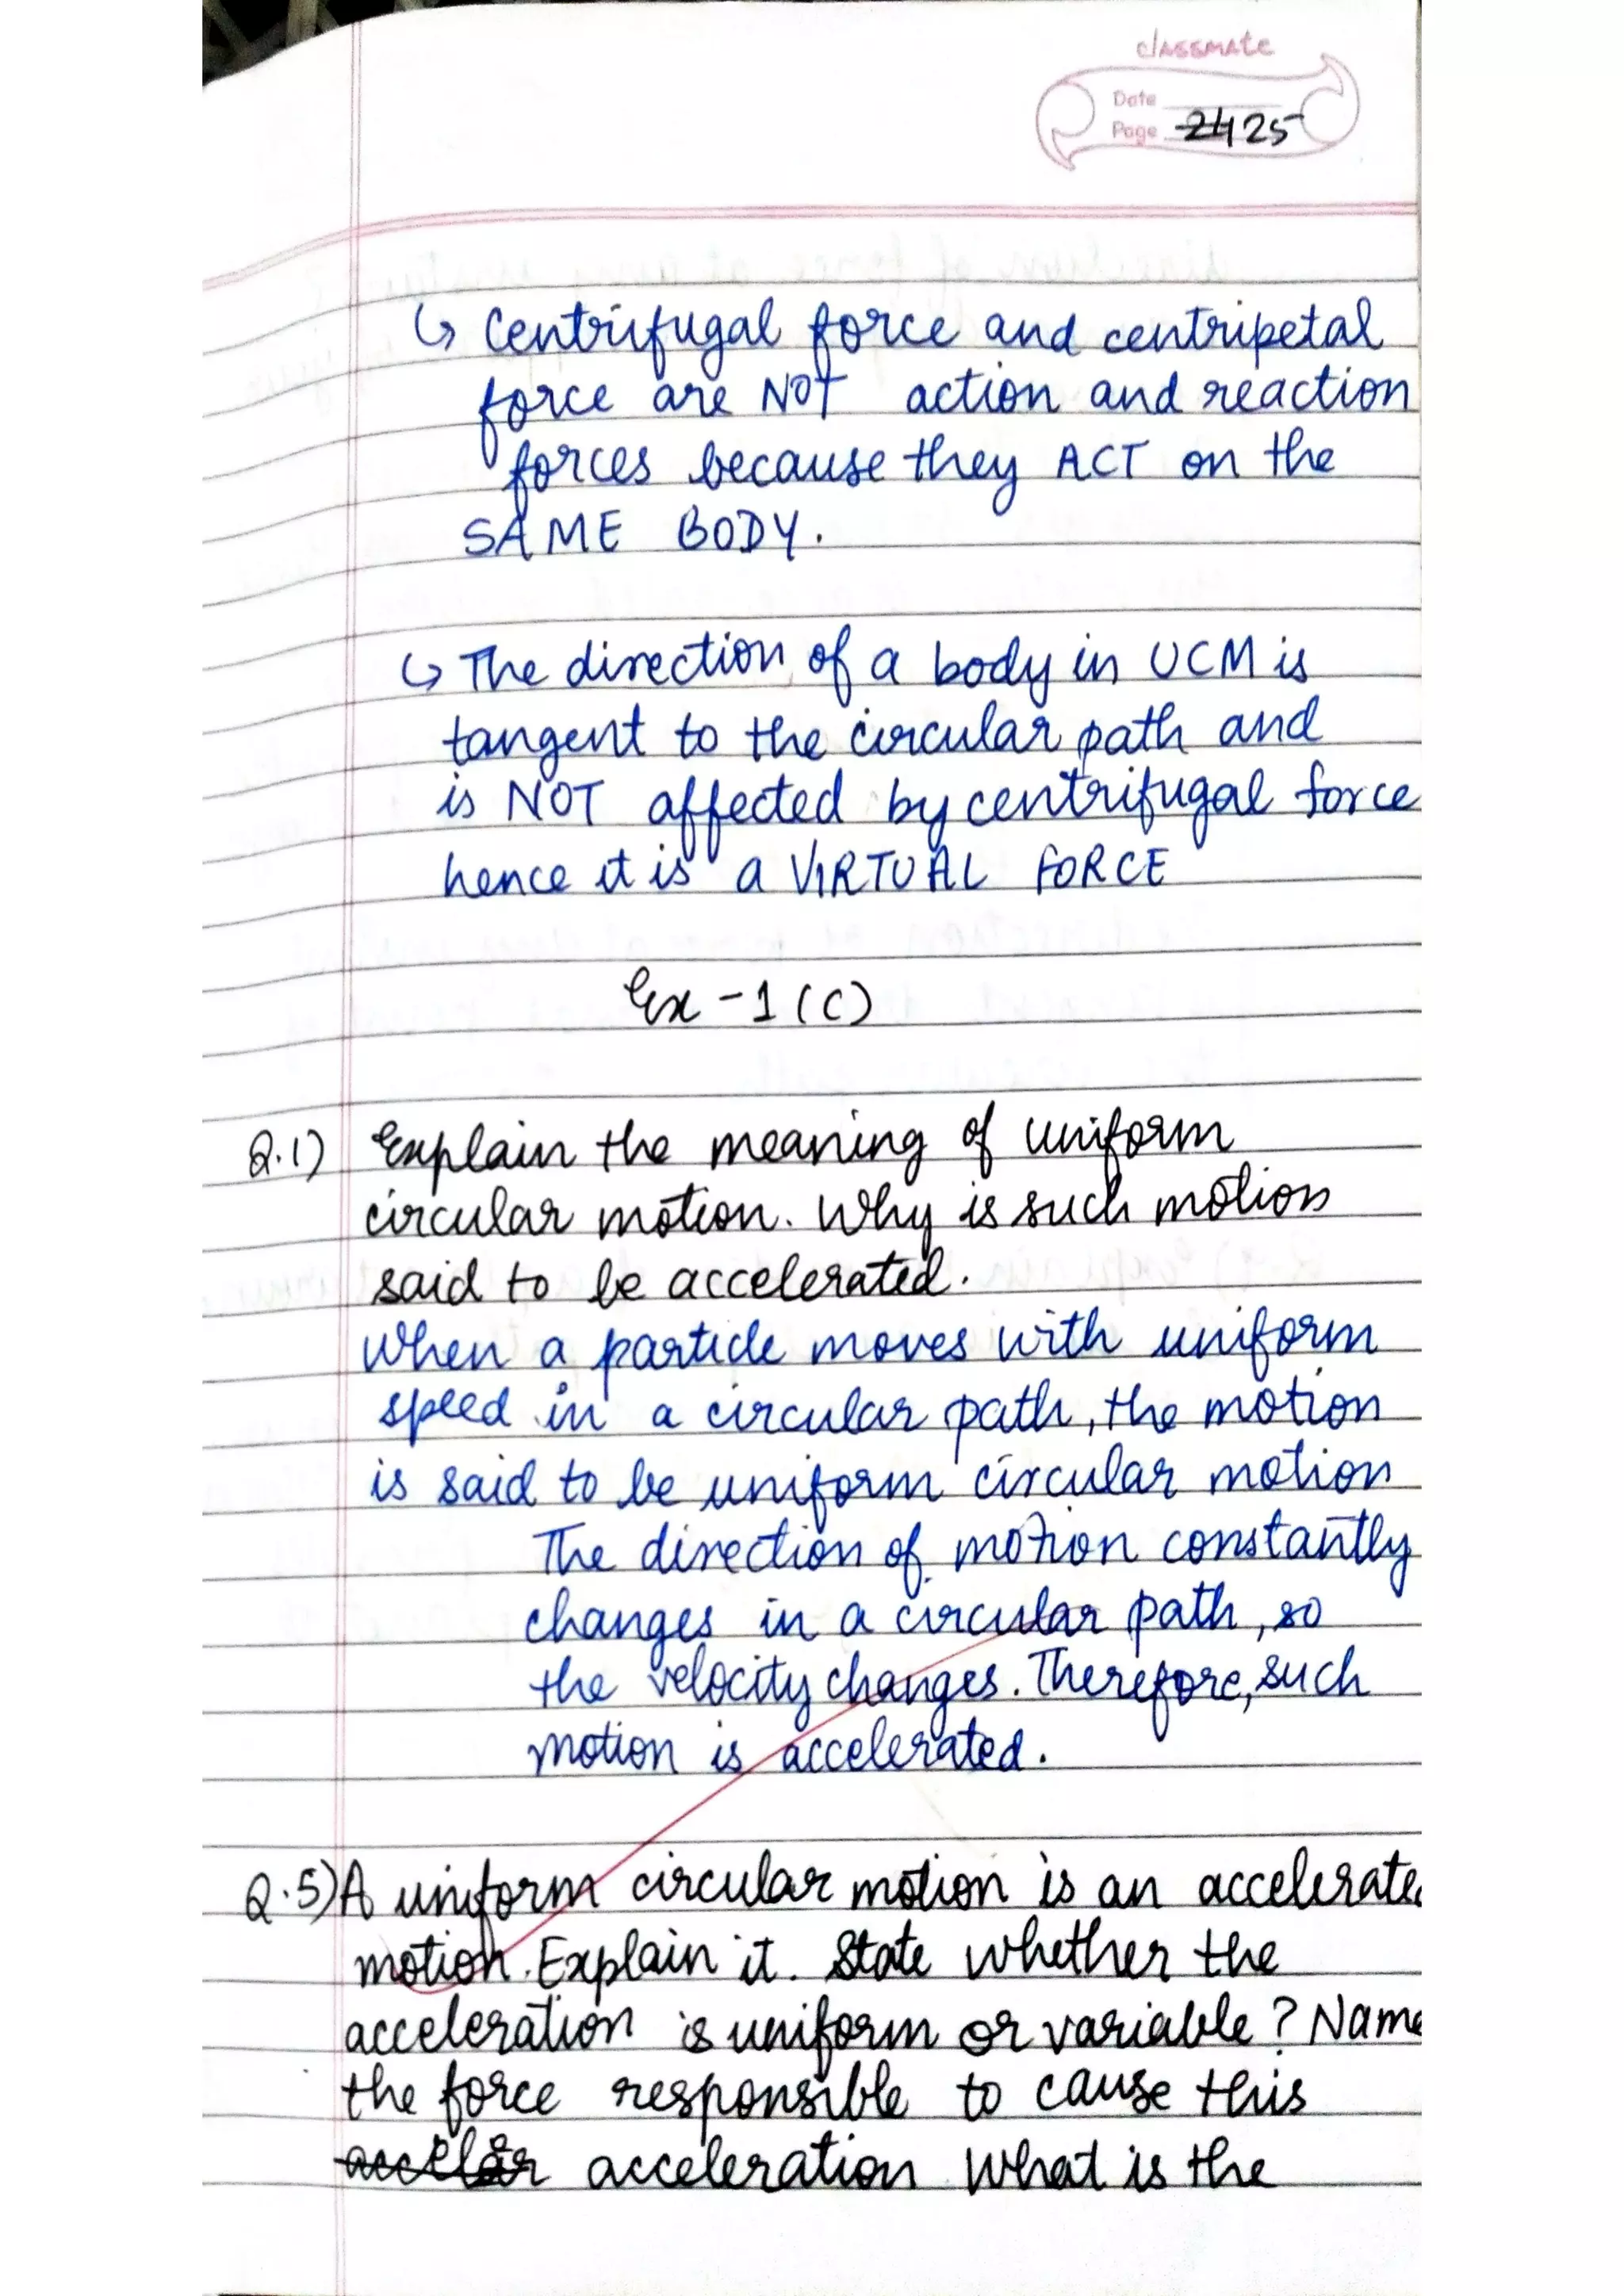 classmate
Date
Page 24 25
↳ Centrifugal force and centripetal
force are NOT action and reaction
forces because they ACT on the
SAME BODY.
↳ The direction of a body in UCM is
tangent to the circular path and
is NOT affected by centrifugal force
hence it is a VIRTUAL FORCE
Ex - 1 (C)
Q.1) Explain the meaning of uniform
circular motion. Why is such motion
said to be accelerated.
When a particle moves with uniform
speed in a circular path, the motion
is said to be uniform circular motion
The direction of motion constantly
changes in a circular path, so
the velocity changes. Therefore, such
motion is accelerated.
Q.5) A uniform circular motion is an accelerated
motion. Explain it. State whether the
acceleration is uniform or variable? Name
the force responsible to cause this
acceleration What is the